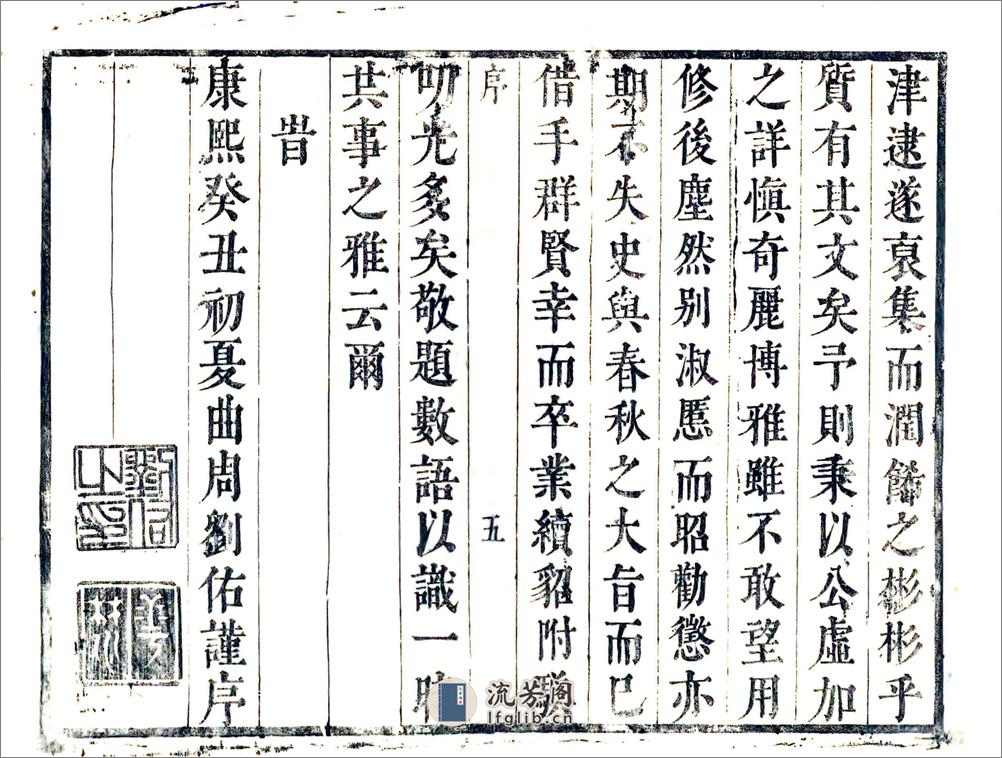 津逮遂裒集而潤餙之彬彬乎
質有其文矣予則秉以公虛加
之詳慎奇麗博雅雖不敢望用
修後塵然别淑慝而昭勸懲亦
期不失史與春秋之大旨而已
借手群賢幸而卒業續貂附驥
序
五
叨光多矣敬題數語以識一時
共事之雅云爾
旹
康熙癸丑初夏曲周劉佑謹序
劉佑之印
流芳阁
lfglib.cn